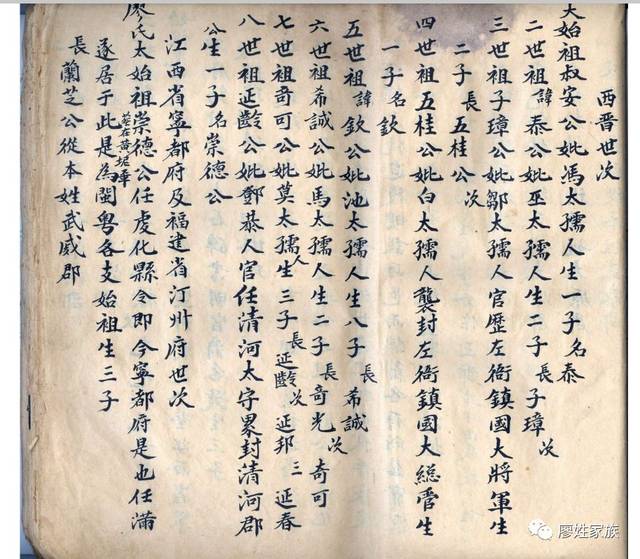 西晋世次
大始祖叔安公妣馮太孺人生一子名泰
二世祖諱泰公妣巫太孺人生二子長子璋次
三世祖子璋公妣鄒太孺人官歷左衙鎮國大將軍生
二子長五桂公次
四世祖五桂公妣白太孺人襲封左衙鎮國大総管生
一子名欽
五世祖諱欽公妣池太孺人生八子長希誠
六世祖希誠公妣馬太孺人生二子長奇光次奇可
七世祖奇可公妣莫太孺人生三子長延齡次延邦三延春
八世祖延齡公妣鄧恭人官任清河太守累封清河郡
公生一子名崇德公
江西省寧都府及福建省汀州府世次
廖氏太始祖崇德公任虔化縣令即今寧都府是也任滿
遂居于此是為閩粤各支始祖生三子
葬在黄坭
長蘭芝公從本姓武威郡
廖姓家族